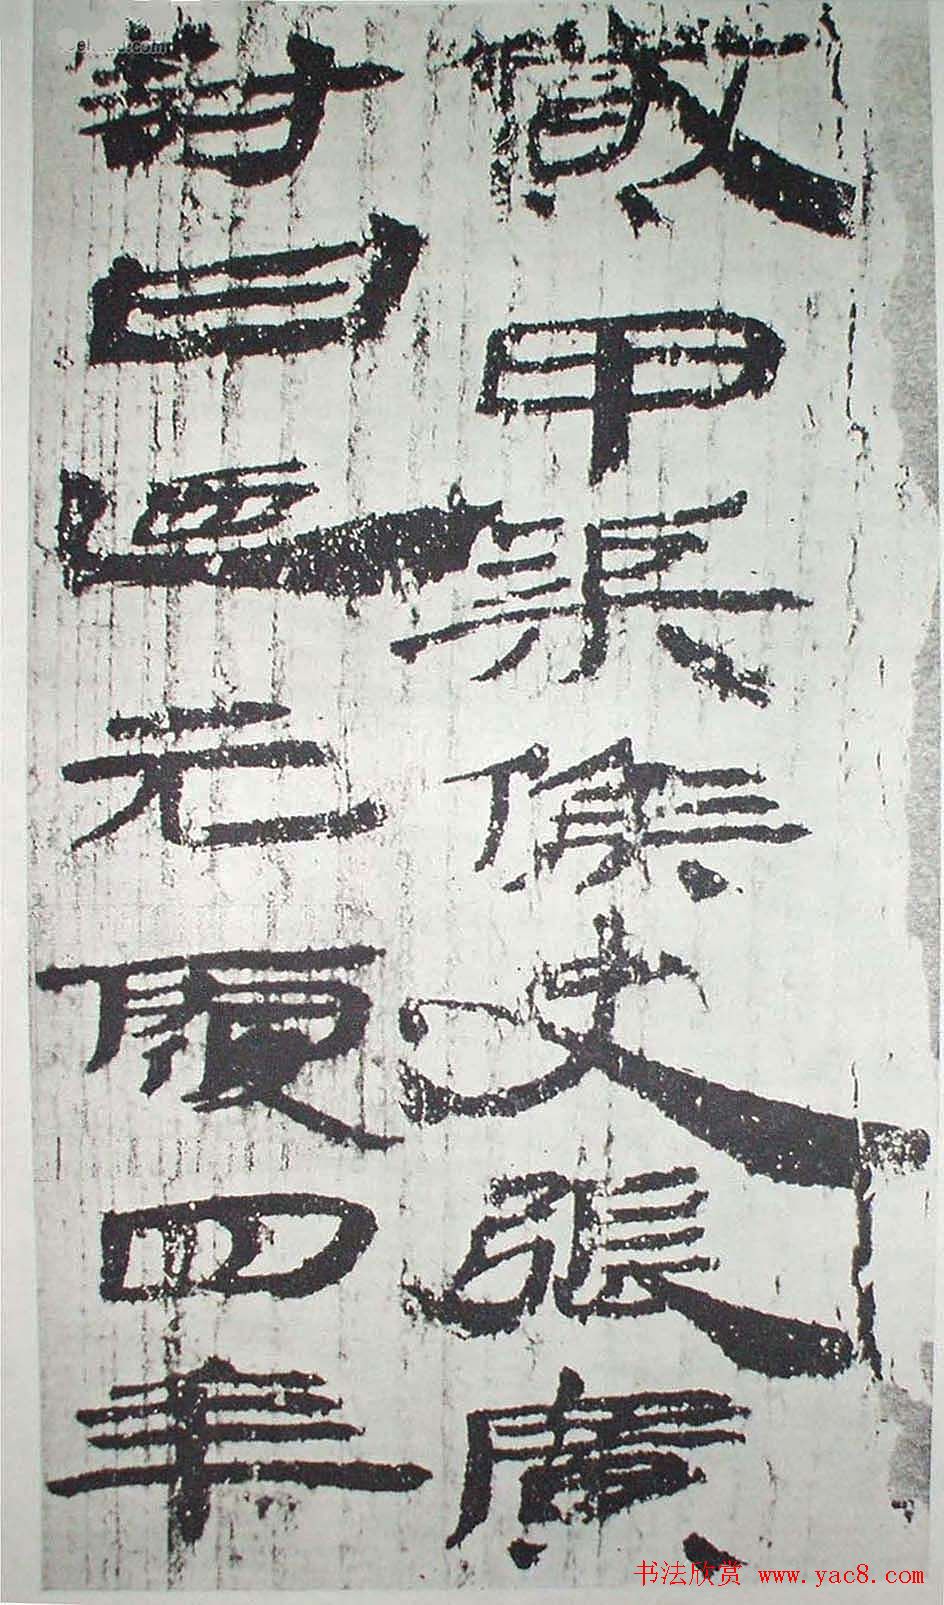 甲渠候史張廣
曰迺元四年
書法欣赏 www.yac8.com